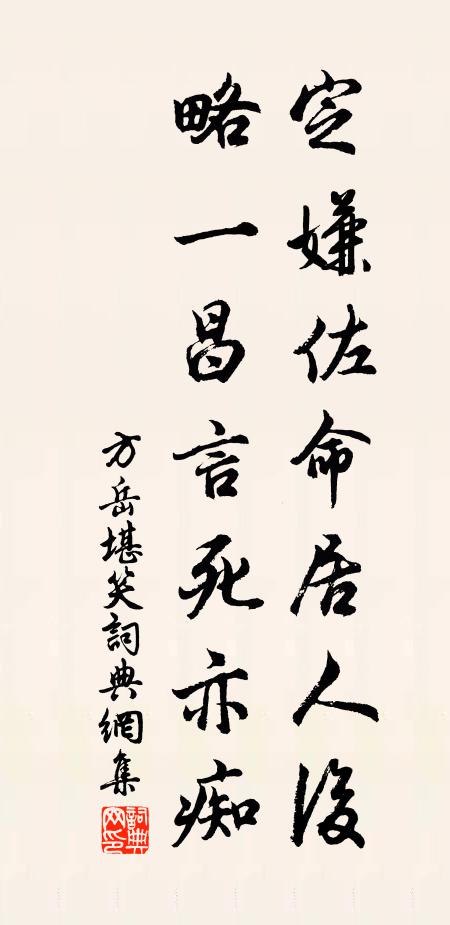 定嫌佐命居人後
略一昌言死亦痴
方岳堪笑詞典網集
詞典網印